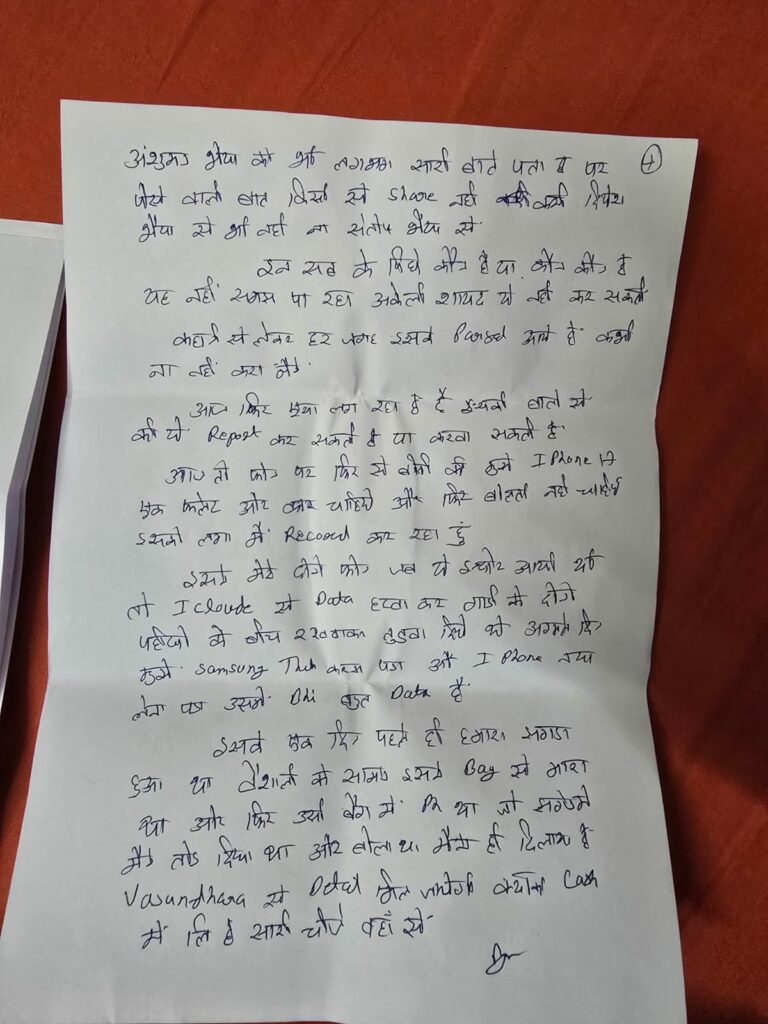 अंशुमन भैया को भी लगभग सारी बाते पता है पर
पैसे वाली बात किसी से share नहीं करी
भैया से भी नहीं ना संतोष भैया से
इन सब के पिछे कौन है या कौन कौन है
यह नहीं समझ पा रहा अकेली शायद ये नहीं कर सकती
से लेकर हर जगह इसके आये है कभी
ना नहीं करा मैने
आज फिर एसा लग रहा है इसकी बातो से
की ये Report कर सकती है या करवा सकती है
आज तो फोन पर फिर से बोली की मुझे I Phone 17
एक फ्लेट और कार चाहिये और फिर बोलती नही चाहिये
इसको लगा में Record कर रहा हुं
इसने मेरे दोनो फोन जब ये इन्दोर आयी थी
तो I Cloude से Data हटवा कर गाडी के दोनो
पहीयो के बीच रखवाकर तुडवा दिये थे अगले दिन
मुझे Samsung लेना पडा और I Phone नया
लेना पडा उसमे Bhi बहुत Data है
इसके एक दिन पहले ही हमारा झगडा
हुआ था वैशाली के सामने इसने Bag से मारा
था और फिर उसी बैग में था जो
मैने तोड दिया था और बोला था मैने ही दिलाया है
Vasundhara से Detail मिल जायेगी क्योंकि Cash
में लि है सारी चीजे वहाँ से